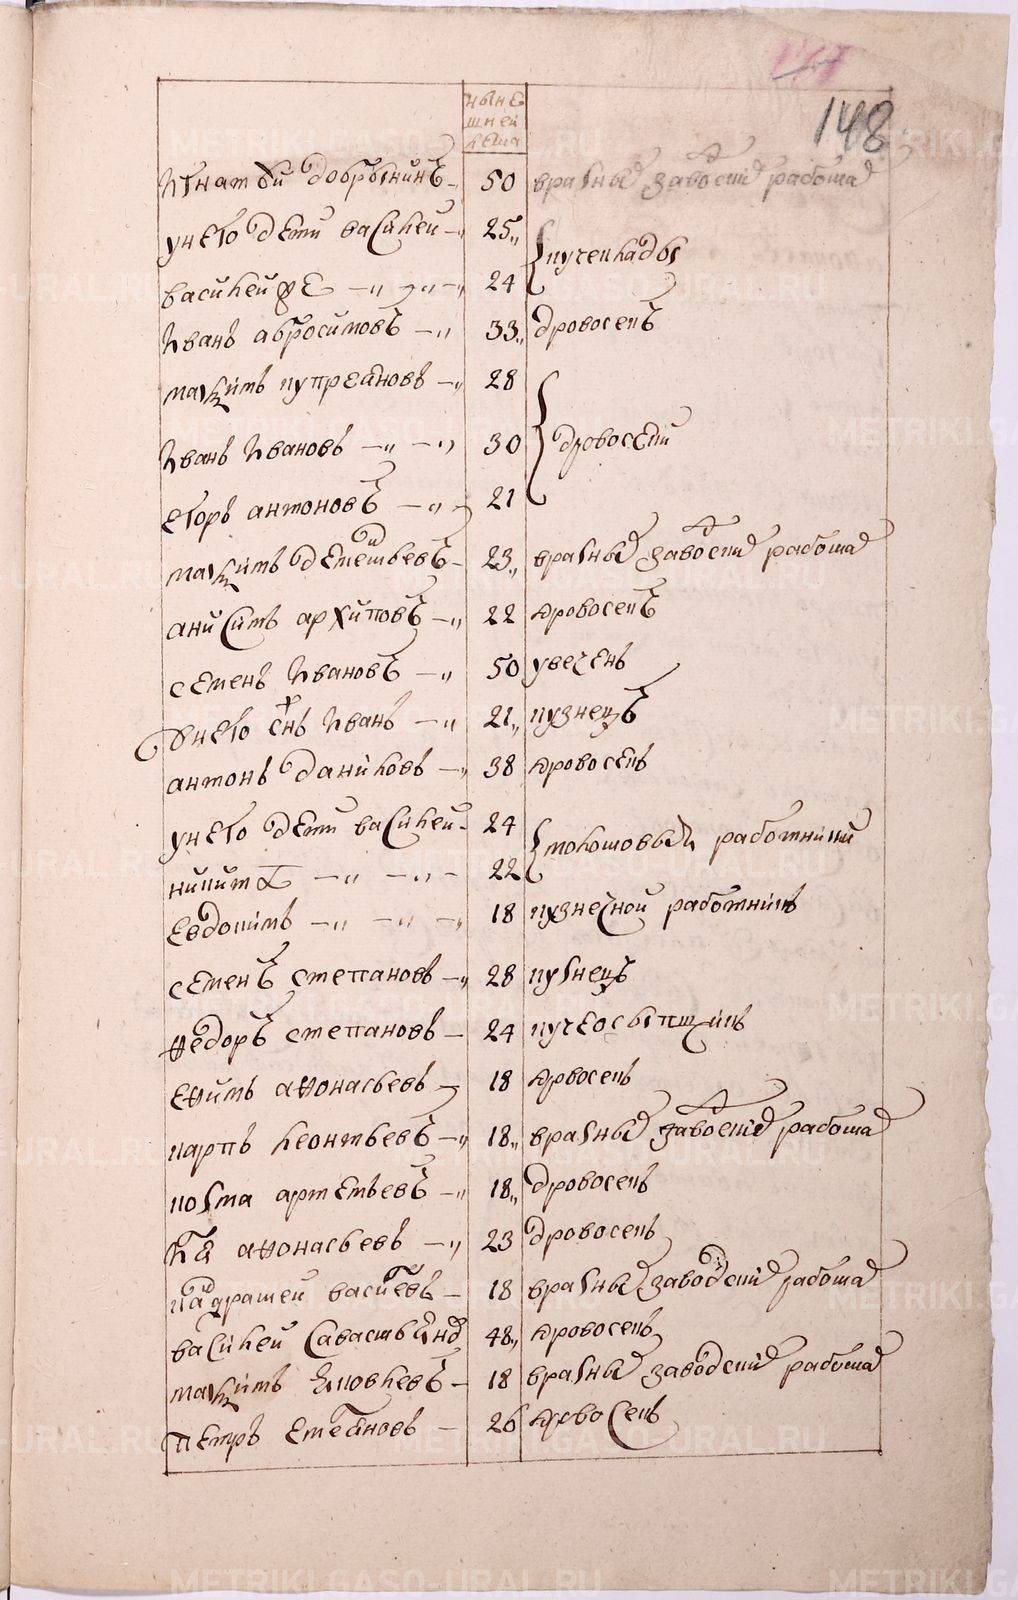 147
148
ныне
шней
лета
Игнатеи добрынинъ 50 вразных заводских работах
унего дети василеи 25 кученклады
василеиже 24
Иванъ абросимовъ 33 дровосекъ
максимъ купреановъ 28
Иванъ Ивановъ 30 дровосеки
егоръ антоновъ 21
максимъ дементьевъ 23 вразных заводских работах
анисимъ архиповъ 22 дровосекъ
семенъ Ивановъ 50 увеченъ
Унего снъ Иванъ 21 кузнецъ
антонъ даниловъ 38 дровосекъ
унего дети василеи 24 молотовыя работники
никита 22
евдокимъ 18 кузнечной работникъ
семенъ степановъ 28 кузнецъ
федоръ степановъ 24 кучеосыпщикъ
ефимъ афонасьевъ 18 дрвосекъ
карпъ леонтьевъ 18 вразных заводских работах
козма артемьевъ 18 дровосекъ
афонасьевъ 23 дровосекъ
кандратеи василевъ 18 вразных заводских работах
василеи савастьянов 48 дровосекъ
максимъ Яковлевъ 18 вразных заводских работах
петръ степановъ 26 дрвосекъ
METRIKI.GASO-URAL.RU